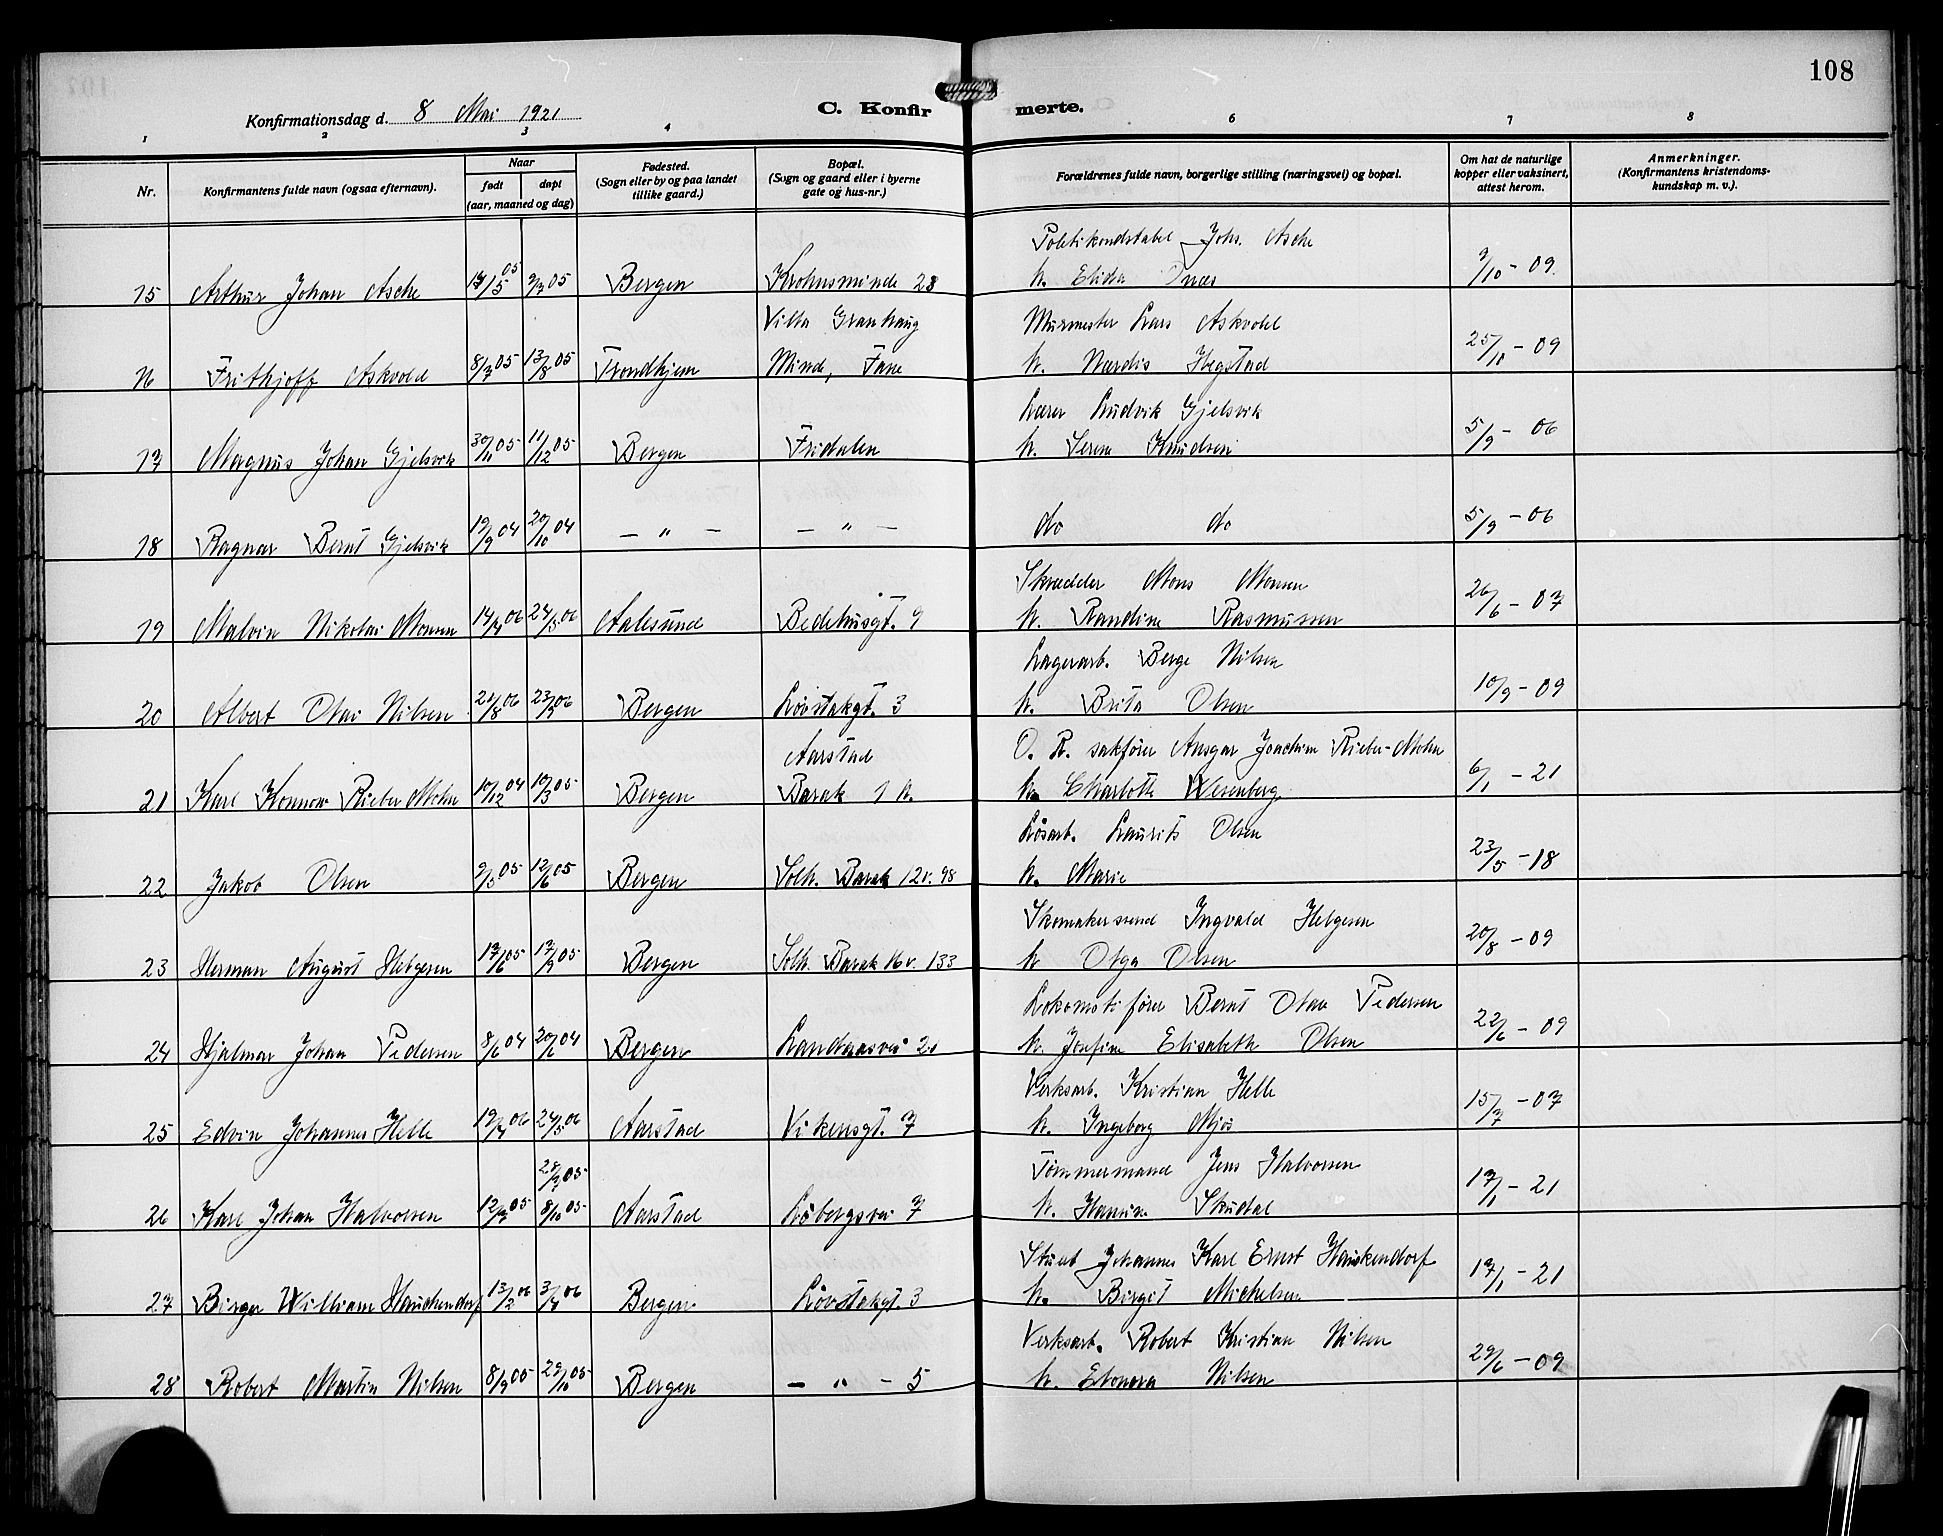 108
Konfirmationsdag d. 8 Mai 1921
C. Konfirmerte.
1 2 3 4 6 7 8
Nr.
Konfirmantens fulde navn (ogsaa efternavn).
Naar
født døpt
(aar, maaned og dag)
Fødested.
(Sogn eller by og paa landet
tillike gaard.)
Bopæl.
(Sogn og gaard eller i byerne
gate og hus-nr.)
Forældrenes fulde navn, borgerlige stilling (næringsvei) og bopæl.
Om hat de naturlige
kopper eller vaksinert,
attest herom.
Anmerkninger.
(Konfirmantens kristendoms-
kundskap m. v.).
Politikondstabel Johs. Asche
15 Arthur Johan Asche 17/5 05 2/7 05 Bergen Krohnsminde 28 h. Elida 9/10 - 09
Villa Granhaug Murmester Lars Askvold
16 Frithjoff Askvold 8/7 05 13/8 05 Trondhjem Minde, Fane h. Nærdis Hegstad 25/10 - 09
Lærer Ludvik Gjelsvik
17 Magnus Johan Gjelsvik 30/11 05 11/12 05 Bergen Fridalen h. Serene Knudsen 5/9 - 06
18 Ragnar Bernt Gjelsvik 19/9 04 20/10 04 - " - - " - do do 5/9 - 06
Skrædder Mons Monsen
19 Malvin Nikolai Monsen 14/4 06 24/5 06 Aalesund Bedehusgt. 9 h. Randine Rasmussen 26/6 - 07
Lagerarb. Berge Nilsen
20 Albert Olai Nilsen 21/8 06 23/9 06 Bergen Løvstakgt. 3 h. Brita Olsen 10/9 - 09
Aarstad O. R. sakfører Ansgar Joachim Rieber-Mohn
21 Karl Konow Rieber Mohn 10/12 04 10/3 05 Bergen Barak 1 h. h. Charlotte Wesenberg 6/1 - 21
Løsarb. Laurits Olsen
22 Jakob Olsen 9/5 05 12/6 05 Bergen Solh. Barak 12 v. 98 h. Marie 23/5 - 18
Skomakersvend Ingvald Helgesen
23 Herman August Helgesen 17/6 05 17/9 05 Bergen Solh. Barak 16 v. 133 h Olga Olsen 20/8 - 09
Lokomotivfører Bernt Olau Pedersen
24 Hjalmar Johan Pedersen 8/6 04 20/6 04 Bergen Landaasvei 21 h. Josefine Elisabeth Olsen 22/6 - 09
Verksarb. Kristian Helle
25 Edvin Johannes Helle 19/4 06 24/5 06 Aarstad Vikensgt. 7 h. Ingeborg Mjøs 15/7 - 07
28/7 05 Tømmermand Jens Halvorsen
26 Karl Johan Halvorsen 12/7 05 8/10 05 Aarstad Løbergsvei 7 h. Hansine Skudal 17/1 - 21
Johannes Karl Ernst Hauskendorf
27 Birger William Hauchendorf 13/2 06 3/4 06 Bergen Løvstakgt. 3 h. Birgit Michelsen 17/1 - 21
Verksarb. Robert Kristian Nilsen
28 Robert Martin Nilsen 8/9 05 29/10 05 Bergen - " - 5 h. Elonora Nilsen 29/6 - 09